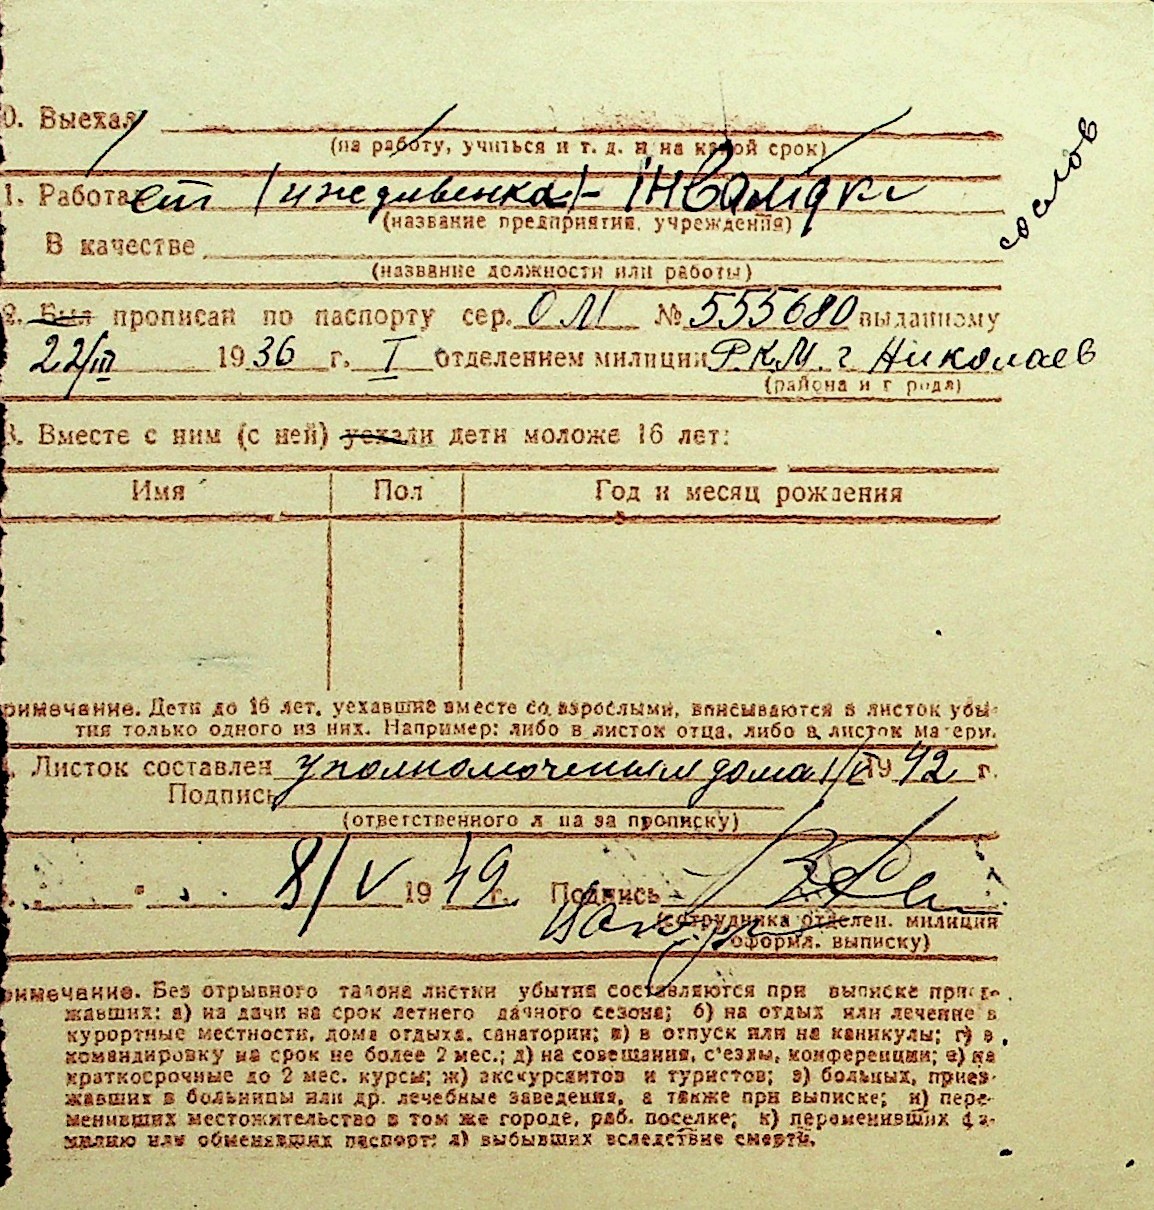 0. Выехал
(на работу, учиться и т. д. и на какой срок)
1. Работает (иждивенка) - інвалідка
(название предприятия, учреждения)
В качестве
(название должности или работы)
сослов
2. Был прописан по паспорту сер. ОМ № 555680 выданному
22/III 1936 г. I отделением милиции Р.К.М. г Николаев
(района и города)
3. Вместе с ним (с ней) уехали дети моложе 16 лет:
Имя Пол Год и месяц рождения
римечание. Дети до 16 лет, уехавшие вместе со взрослыми, вписываются в листок убы-
тия только одного из них. Например: либо в листок отца, либо в листок матери.
Листок составлен уполномоченым дома 1/V 1942 г.
Подпись
(ответственного л ца за прописку)
8/V 1942 г. Подпись
(сотрудника отделен. милиции
оформл. выписку)
римечание. Без отрывного талона листки убытия составляются при выписке приез-
жавших: а) на дачи на срок летнего дачного сезона; б) на отдых или лечение в
курортные местности, дома отдыха, санатории; в) в отпуск или на каникулы; г) в
командировку на срок не более 2 мес.; д) на совещания, с'езды, конференции; е) на
краткосрочные до 2 мес. курсы; ж) экскурсантов и туристов; з) больных, приез-
жавших в больницы или др. лечебные заведения, а также при выписке; и) пере-
менивших местожительство в том же городе, раб. поселке; к) переменивших фа-
милию или обменявших паспорт; л) выбывших вследствие смерти.